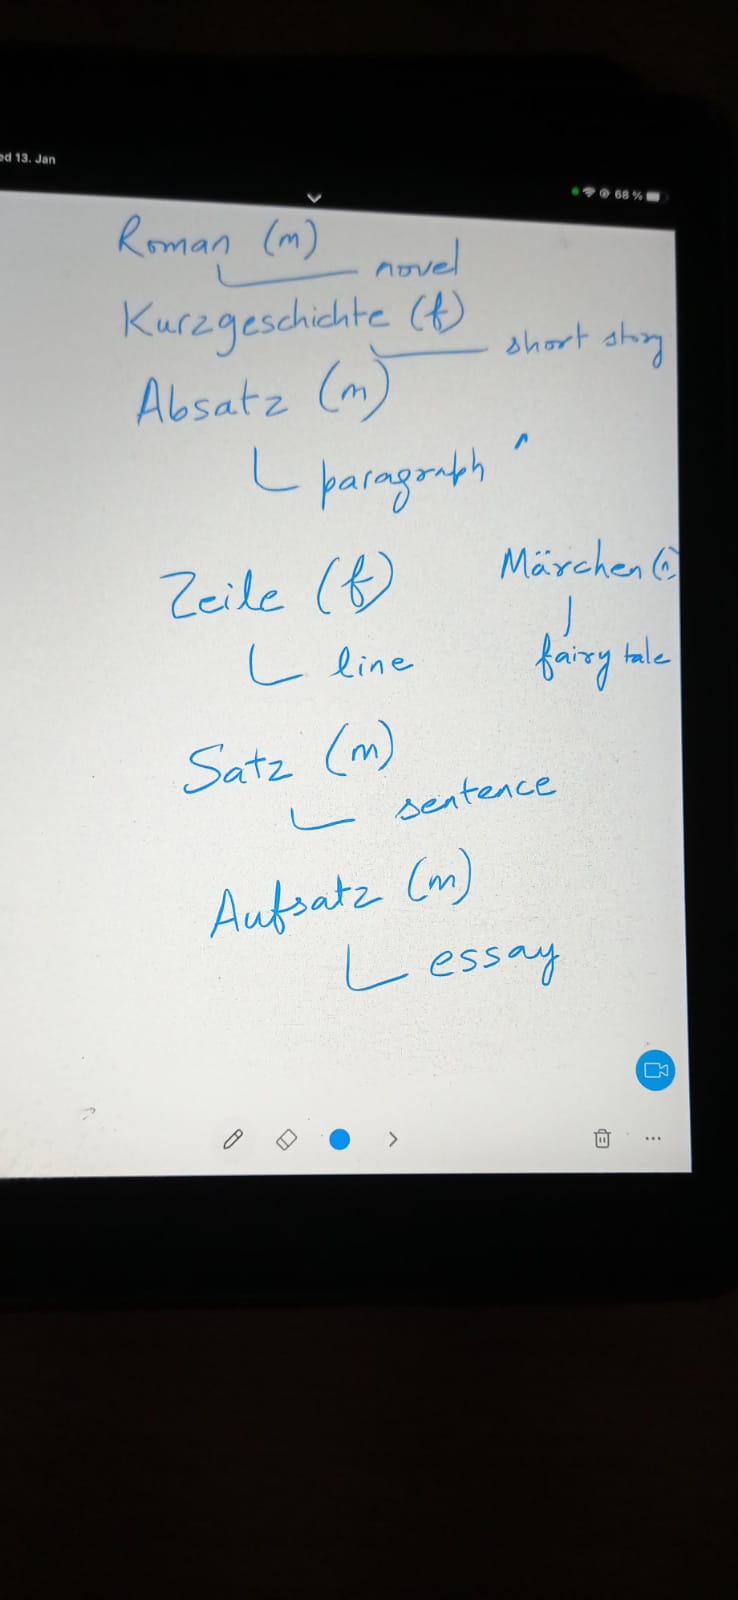 ed 13. Jan
68 %
Roman (m)
novel
Kurzgeschichte (f)
short story
Absatz (m)
paragraph
Zeile (f)
line
Märchen (n)
fairy tale
Satz (m)
sentence
Aufsatz (m)
essay